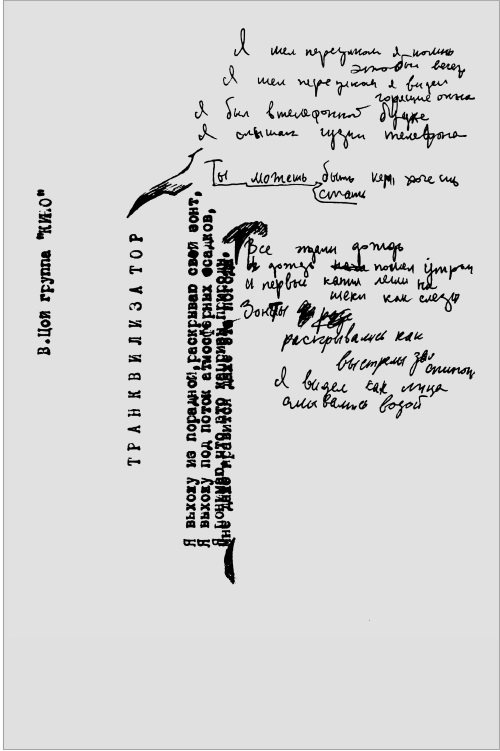 В.Цой группа "КИНО"
ТРАНКВИЛИЗАТОР
Я выхожу из порадной,раскрываю свой зонт,
Я выхожу под поток атмосферных осадков,
Я понимаю,что это капризы природы,
Мне даже нравится даже эта погода.
Я шел переулком я помню
это был вечер
Я шел переулком я видел
горящие окна
Я был в телефонной будке
Я слышал гудки телефона
Ты можешь быть кем хочешь
стать
Все ждали дождь
И дождь пошел утром
И первые капли легли на
щеки как слезы
Зонты
раскрывались как
выстрелы за спиной
Я видел как лица
омывались водой